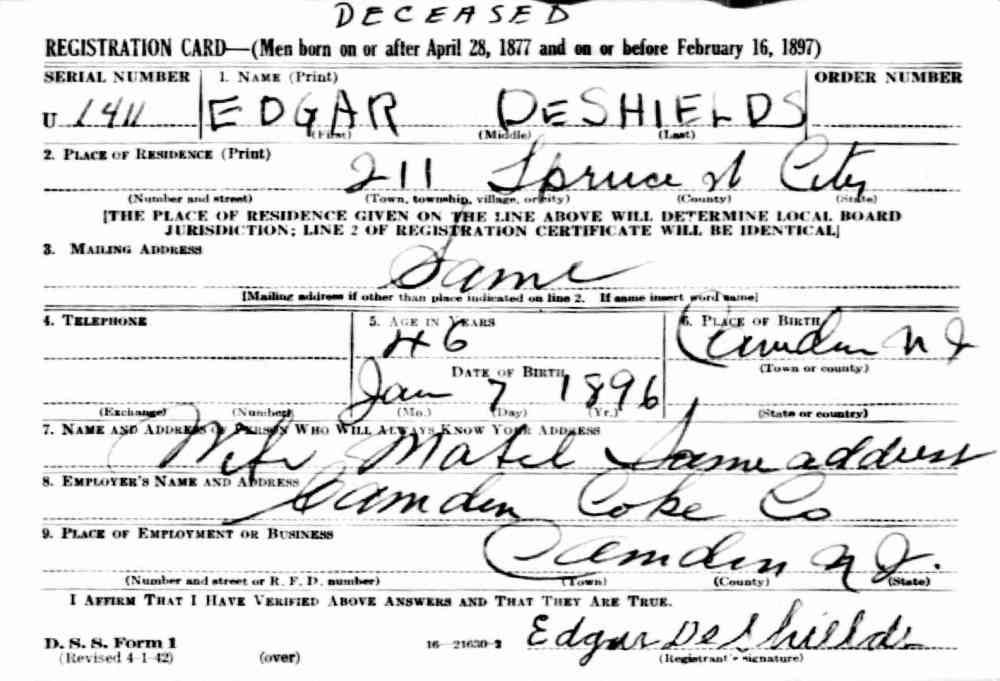 DECEASED
REGISTRATION CARD—(Men born on or after April 28, 1877 and on or before February 16, 1897)
SERIAL NUMBER 1. NAME (Print) ORDER NUMBER
U 1411 EDGAR DESHIELDS
(First) (Middle) (Last)
2. PLACE OF RESIDENCE (Print)
211 Spruce st City
(Number and street) (Town, township, village, or city) (County) (State)
[THE PLACE OF RESIDENCE GIVEN ON THE LINE ABOVE WILL DETERMINE LOCAL BOARD
JURISDICTION; LINE 2 OF REGISTRATION CERTIFICATE WILL BE IDENTICAL]
3. MAILING ADDRESS
Same
[Mailing address if other than place indicated on line 2. If same insert word same]
4. TELEPHONE 5. AGE IN YEARS 6. PLACE OF BIRTH
46 Camden N J
(Town or county)
DATE OF BIRTH
Jan 7 1896
(Exchange) (Number) (Mo.) (Day) (Yr.) (State or country)
7. NAME AND ADDRESS OF PERSON WHO WILL ALWAYS KNOW YOUR ADDRESS
Wife Mabel Same address
8. EMPLOYER'S NAME AND ADDRESS
Camden Coke Co
9. PLACE OF EMPLOYMENT OR BUSINESS
Camden N J.
(Number and street or R. F. D. number) (Town) (County) (State)
I AFFIRM THAT I HAVE VERIFIED ABOVE ANSWERS AND THAT THEY ARE TRUE.
D. S. S. Form 1 16—21630-2 Edgar DeShields
(Revised 4-1-42) (over) (Registrant's signature)